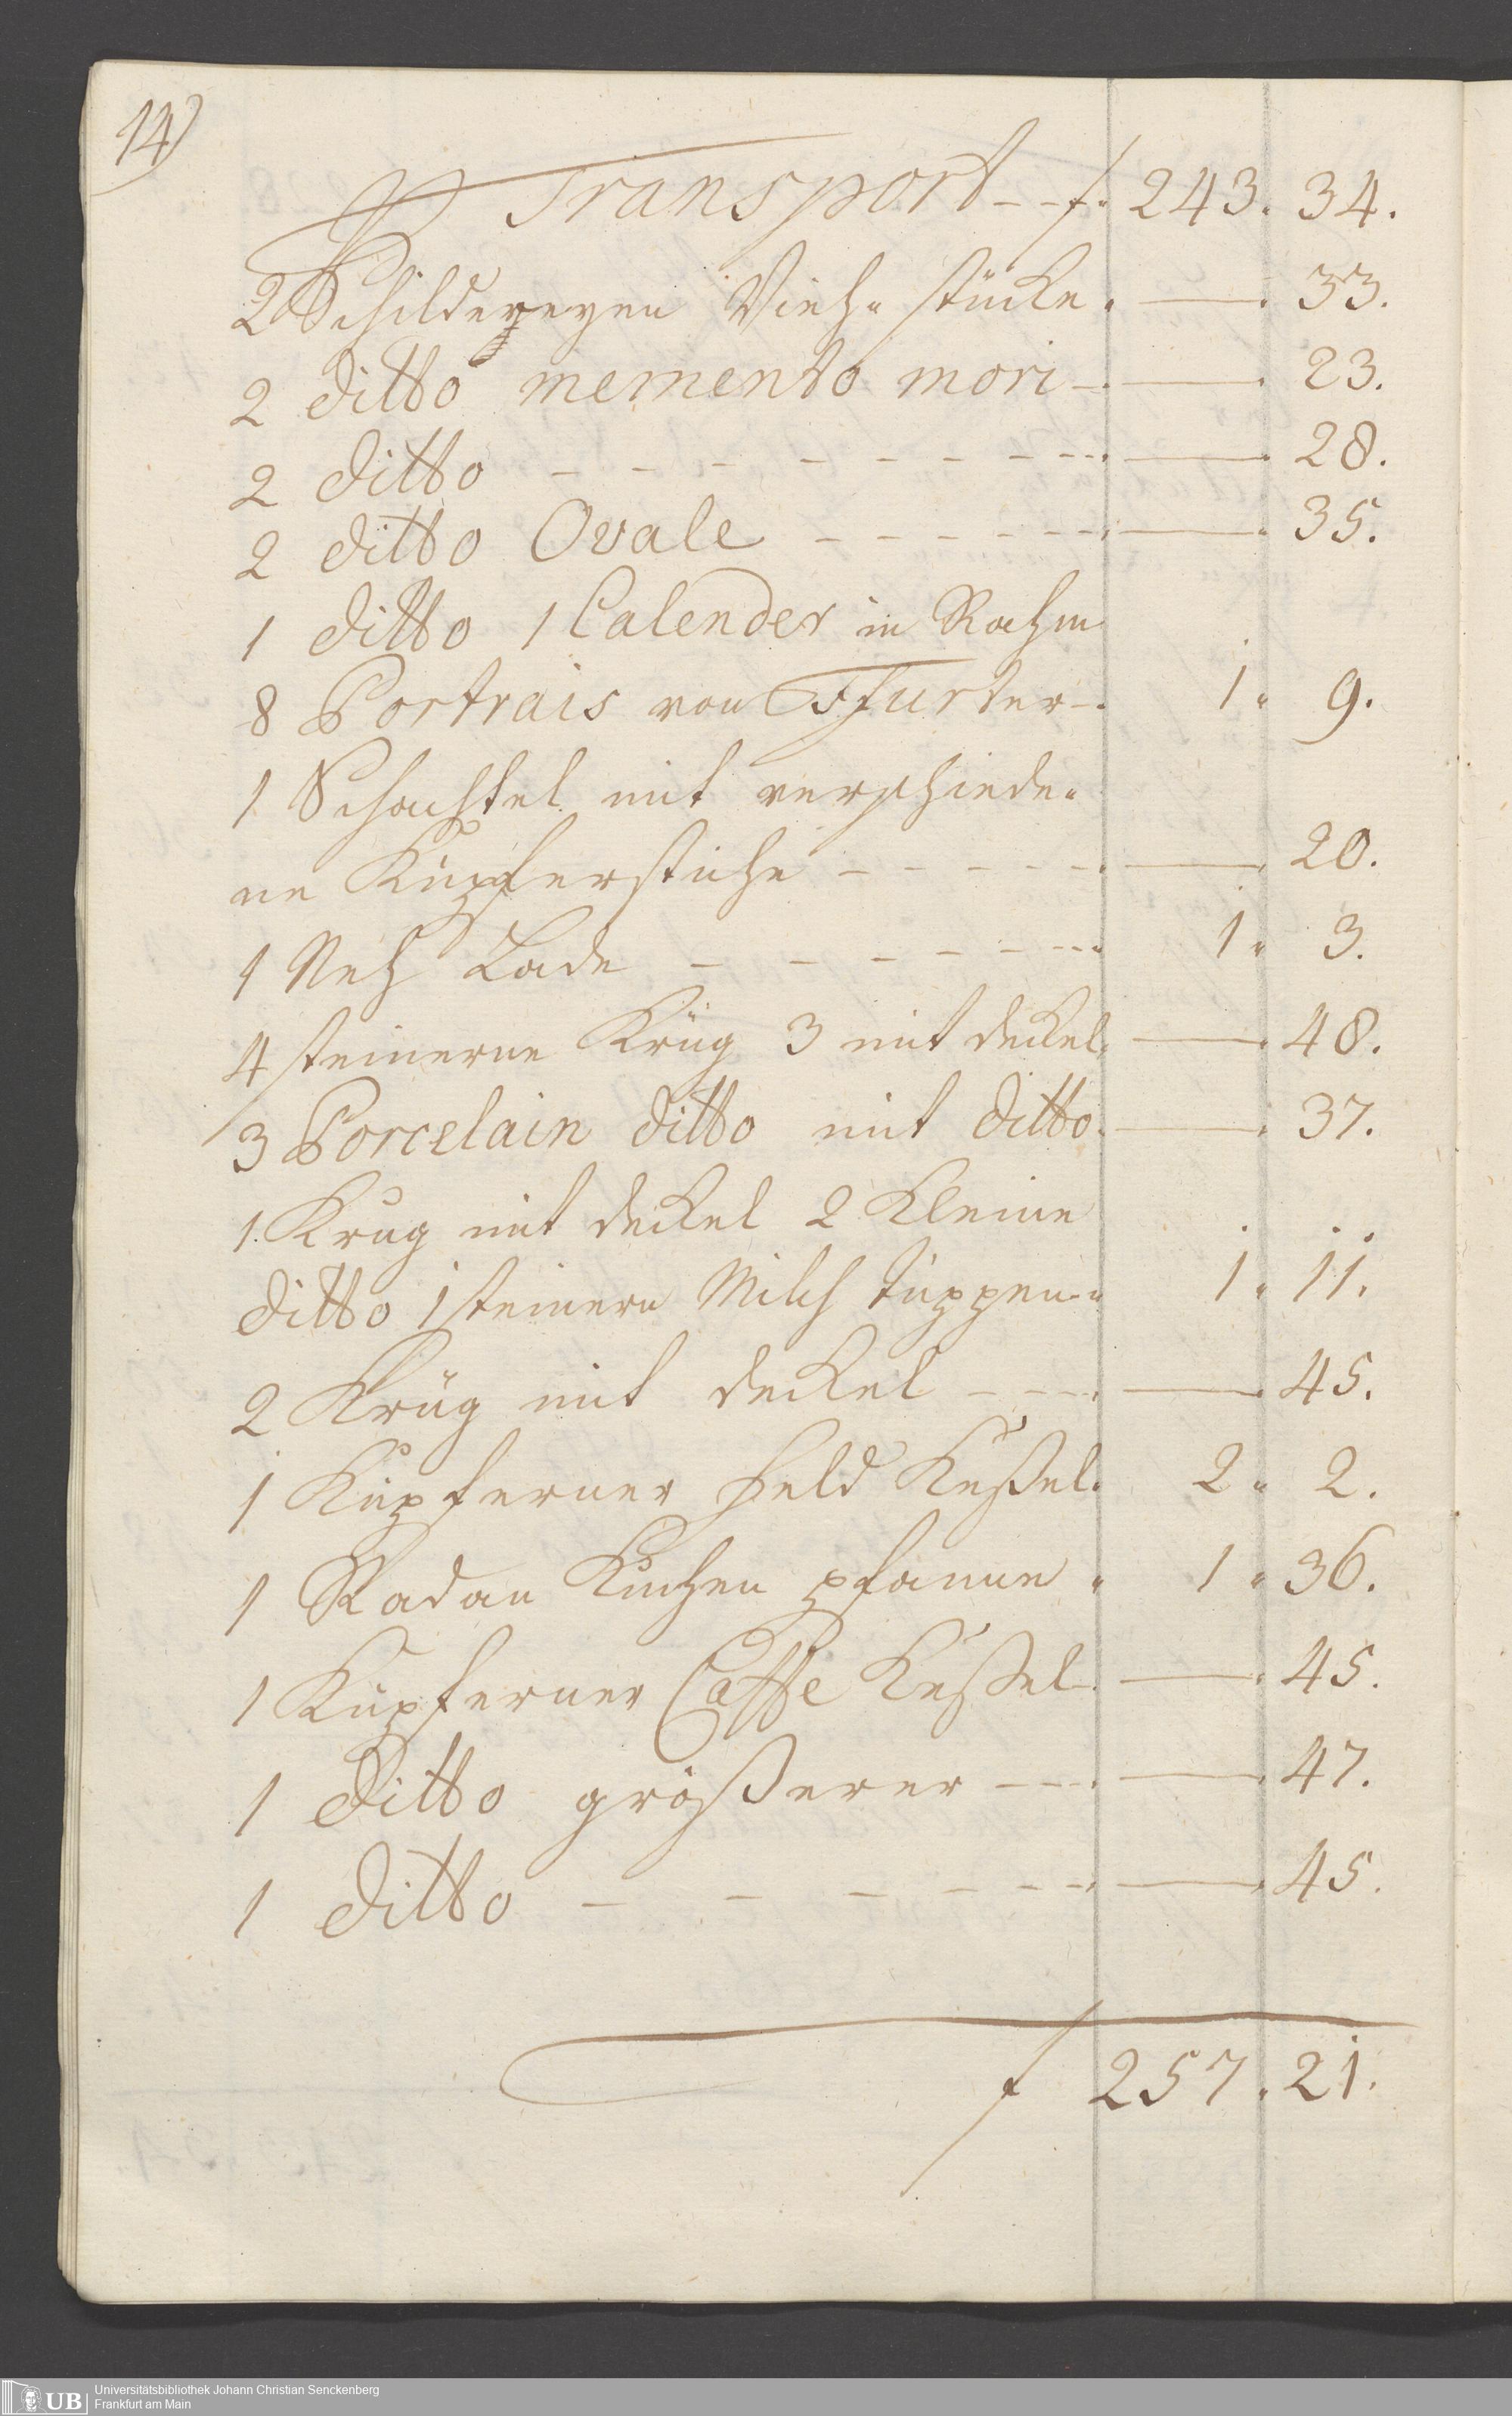 14)
Transport – – f. 243. 34.
2 Schildereyen Vieh= stücke. —. 33.
2 ditto memento mori —. 23.
2 ditto – – – – – – – – —. 28.
2 ditto Ovale – – – – – – —. 35.
1 ditto 1 Calender in Rahm
8 Portrais von Ffurter –. 1. 9.
1 Schachtel mit verschiede=
ne Kupferstiche – – – – – — 20.
1 Neh Lade – – – – – – 1. 3.
4 steinerne Krüg 3 mit deckel. —. 48.
3 Porcelain ditto mit ditto. —. 37.
1. Krug mit deckel 2 Kleine
ditto 1 steinern Milch düppen. 1. 11.
2 Krüg mit deckel – – – —. 45.
1 Kupferner feld Keßel. 2. 2.
1 Kuchen pfanne. 1. 36.
1 Kupferner Caffe Keßel. —. 45.
1 Ditto größerer – – – —. 47.
1 ditto – – – – – – —. 45.
f 257. 21.
UB Universitätsbibliothek Johann Christian Senckenberg
Frankfurt am Main